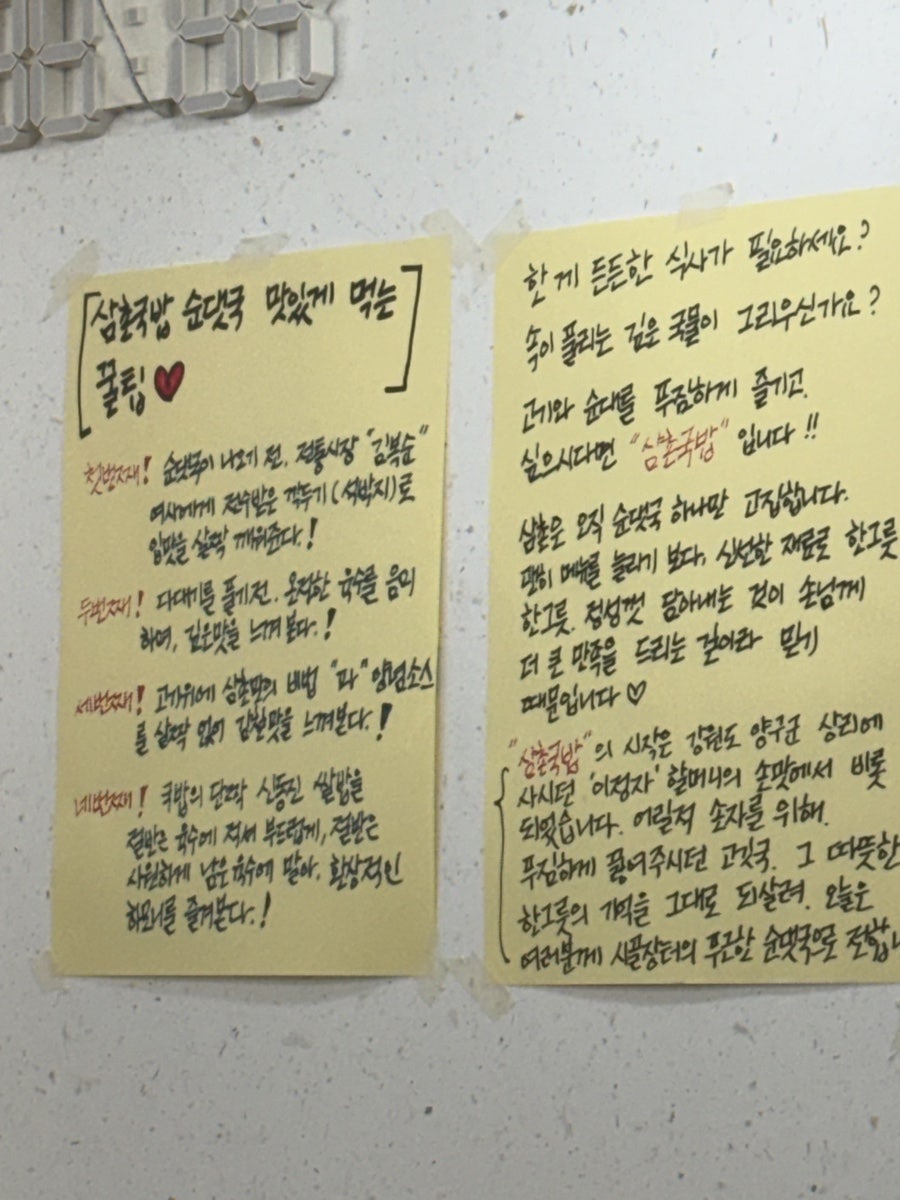 [삼촌국밥 순댓국 맛있게 먹는
꿀팁♥]
첫번째! 순댓국이 나오기 전, 전통시장 "김복순"
여사에게 전수받은 깍두기(석박지)로
입맛을 살짝 깨워준다.!
두번째! 다대기를 풀기전, 온전한 육수를 음미
하며, 깊은맛을 느껴본다.!
세번째! 고기위에 삼촌만의 비법 "파" 양념소스
를 살짝 얹어 감칠맛을 느껴본다.!
네번째! 국밥의 단짝 신동진 쌀밥을
절반은 육수에 적셔 부드럽게, 절반은
시원하게 남은 육수에 말아, 환상적인
하모니를 즐겨본다.!
한 게 든든한 식사가 필요하세요?
속이 풀리는 깊은 국물이 그리우신가요?
고기와 순대를 푸짐하게 즐기고
싶으시다면 "삼촌국밥" 입니다!!
삼촌은 오직 순댓국 하나만 고집합니다.
괜히 메뉴를 늘리기 보다, 신선한 재료로 한그릇
한그릇. 정성껏 담아내는 것이 손님께
더 큰 만족을 드리는 길이라 믿기
때문입니다♡
"삼촌국밥"의 시작은 강원도 양구군 상리에
사시던 '이정자' 할머니의 손맛에서 비롯
되었습니다. 어릴적 손자를 위해.
푸짐하게 끓여주시던 고깃국. 그 따뜻한
한그릇의 기억을 그대로 되살려. 오늘은
여러분께 시골장터의 푸근한 순댓국으로 전합니